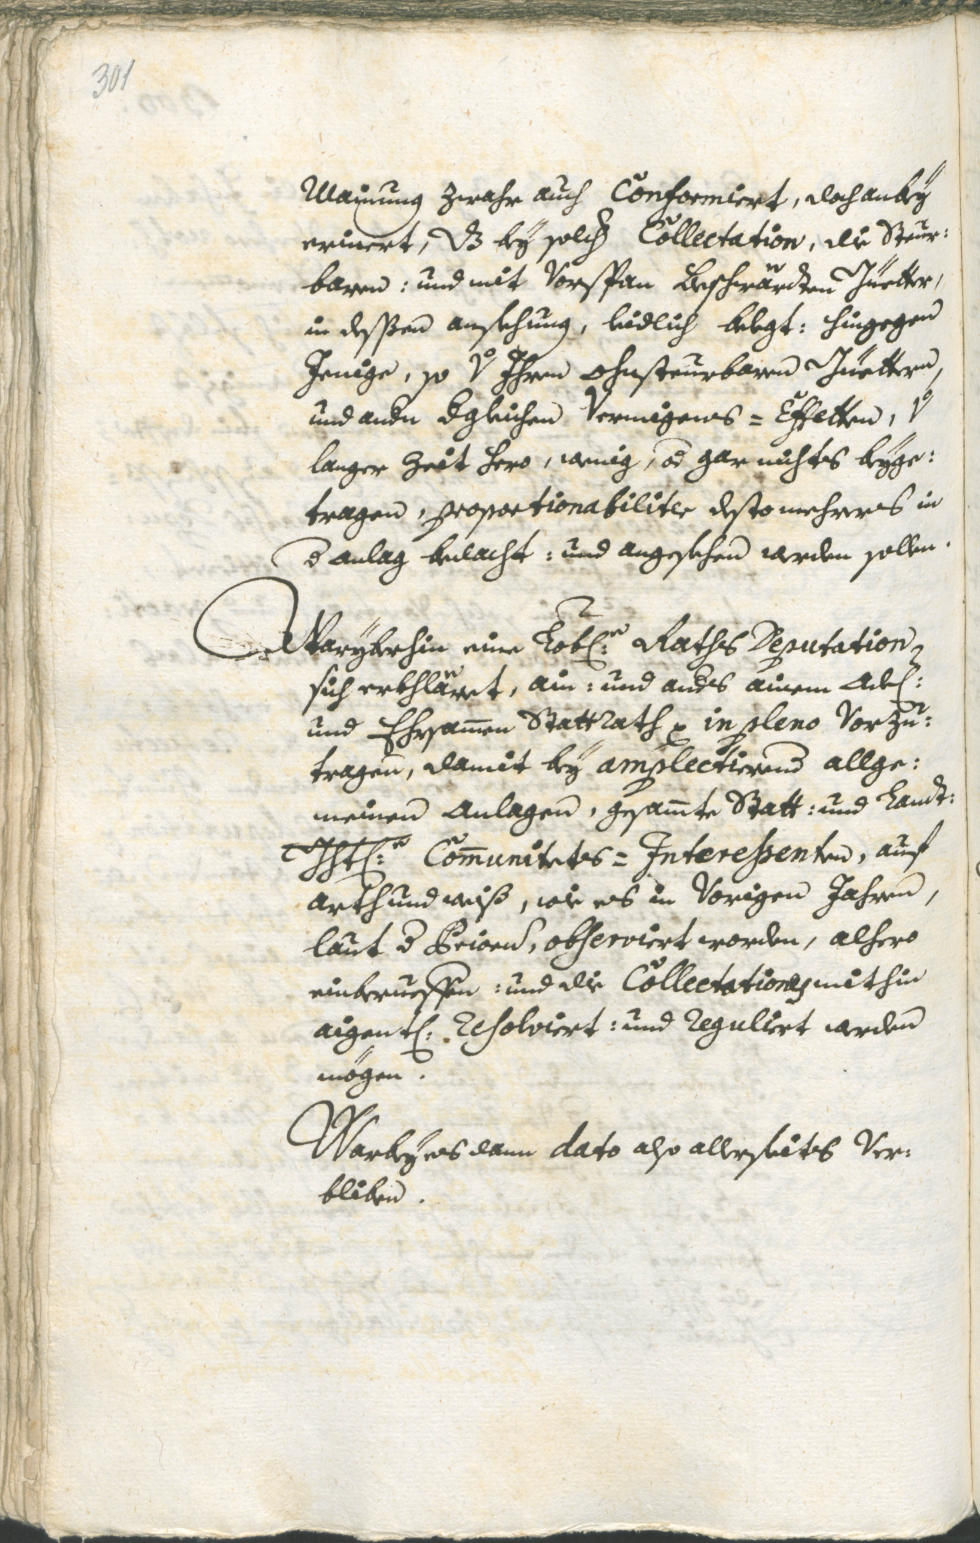 301
Mainung zwahr auch Conformiert, doch anbeÿ
erinert, dz beÿ solch Collectation, die Steur:
baren: und mit Vorspan beschwärdten Güetter,
in dessen ansehung, leidlich belegt: hingegen
Jenige, so v Ihren ohnsteurbaren Güettern,
und andn dgleichen Vermögens = Effetten, v
langer Zeit hero, wenig, od gar nichts beÿge:
tragen, proportionabiliter desto mehrers in
d anlag bedacht: und angesehen werden sollen.
Warÿberhin eine Löbl: Raths Deputation
sich erkhläret, ain: und anders ainem Adel:
und Ehrsamen Stattrath in pleno Vorzu:
tragen, damit beÿ amplectierend allge:
meinen Anlagen, gesamte Statt: und Landt:
Communitets = Interessenten, auf
arth und weiß, wie es in Vorigen Jahren,
laut d observiert worden, alhero
einberueffen: und die Collectationes mithin
aigentl: Resolviert: und Reguliert werden
mögen.
Warbeÿ es dann dato also allerseits Ver:
bliben.